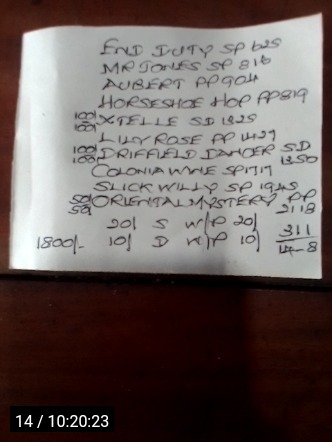 END DUTY SP 625
MR JONES SP 816
AUBERT PP 904
HORSESHOE HOP PP 819
100/100 XTELLE SD 1325
LILY ROSE PP 1429
100/100 DRIFFIELD DANCER SD 1350
COLONIA WINE SP 1717
SLICK WILLY SP 1945
50/50 ORIENTAL MYSTERY PP 2118
20/ S W/P 20/ 311
1800/- 10/ D W/P 10/ 14-8
14 / 10:20:23